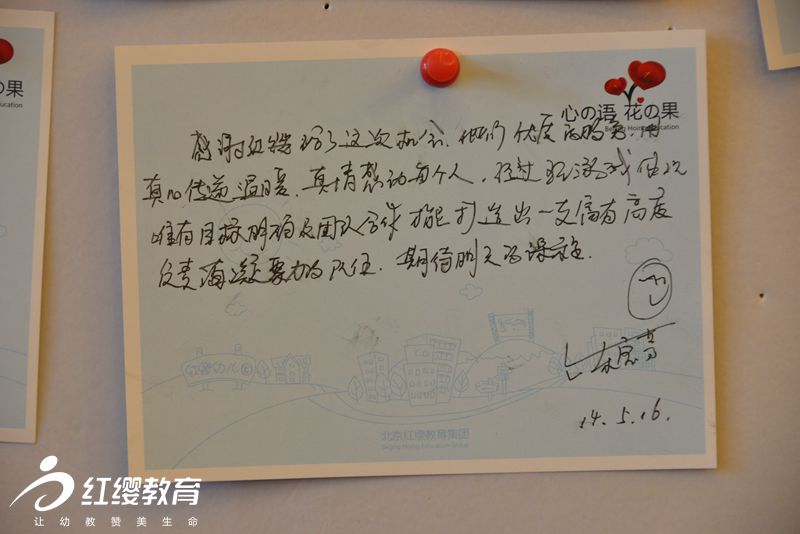 心の语 花の果
Beijing Hoing Education
感谢红缨给了这次机会、他们优质的服务、用
真心传递温暖、真情感动每个人、经过玩游戏使我
唯有目标明确及团队合作才能打造出一支富有高度
负责满凝聚力的队伍．期待明天的课程．
14.5.16.
红缨幼儿
北京红缨教育集团
Beijing Hoing Education Group
の果
ducation
红缨教育
让幼教赞美生命